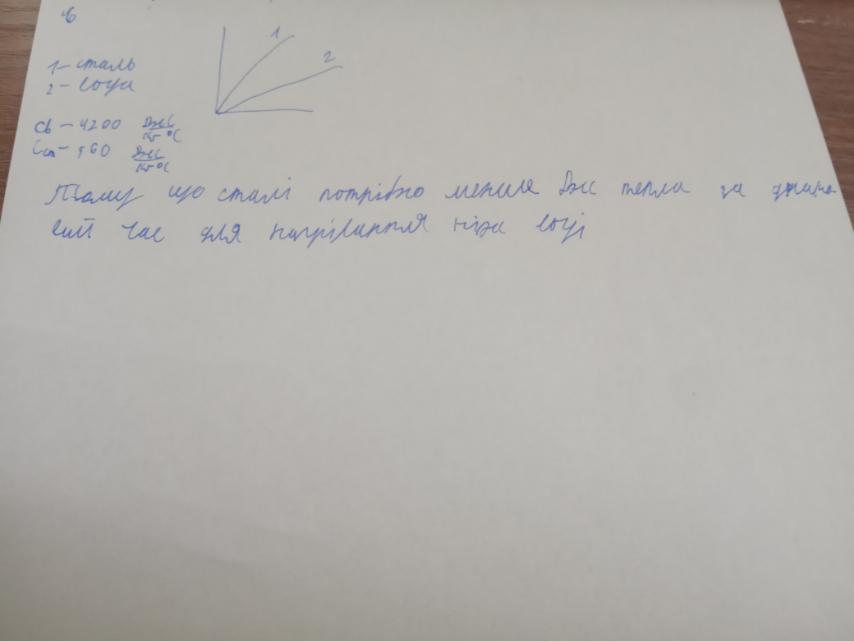 6
1
2
1 - сталь
2 - вода
Cв - 4200 Дж/кг °C
Cст - 460 Дж/кг °C
Тому що сталі потрібно менше Дж тепла за
вий час для нагрівання ніж воді